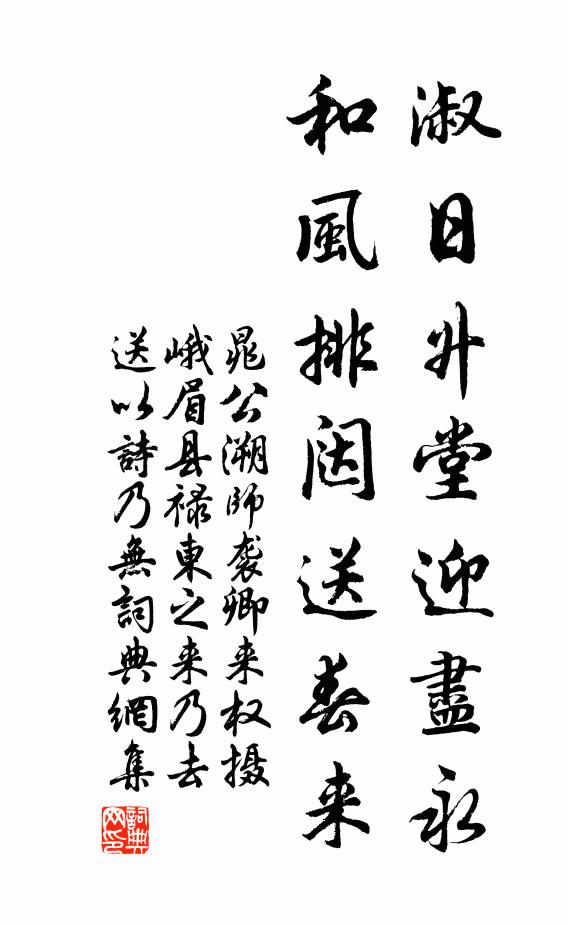 淑日升堂迎盡永
和風排闼送春来
晁公溯師袭卿来权摄
峨眉县禄東之来乃去
送以詩乃無詞典網集
詞典网印